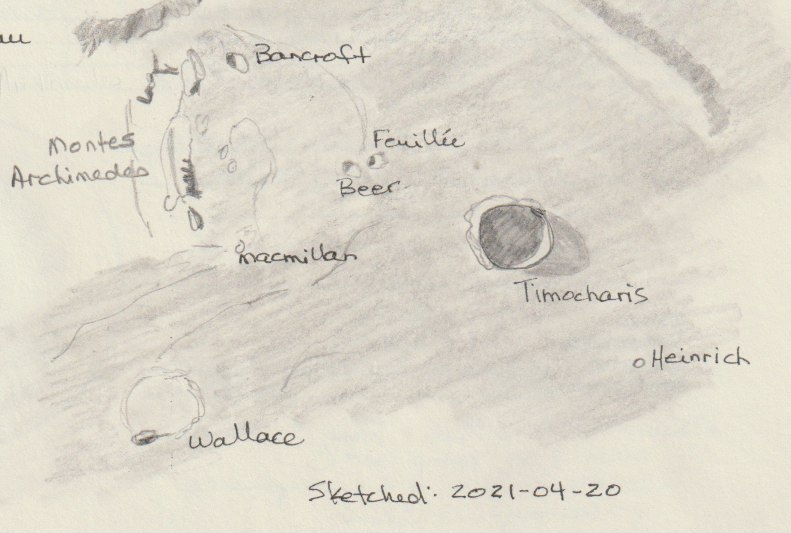 Bancroft
Montes
Archimedes
Feuillée
Beer
macmillan
Timocharis
Heinrich
Wallace
Sketched: 2021-04-20